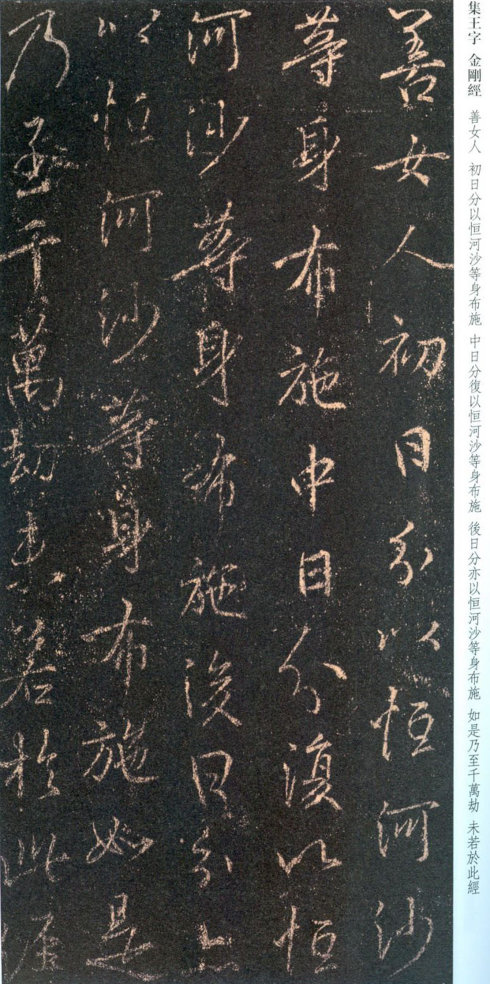 集王字 金剛經 善女人 初日分以恒河沙等身布施 中日分復以恒河沙等身布施 後日分亦以恒河沙等身布施 如是乃至千萬劫 未若於此經
善女人初日分以恒河沙
等身布施中日分復以恒
河沙等身布施後日分亦
以恒河沙等身布施如是
乃至千萬劫未若於此經